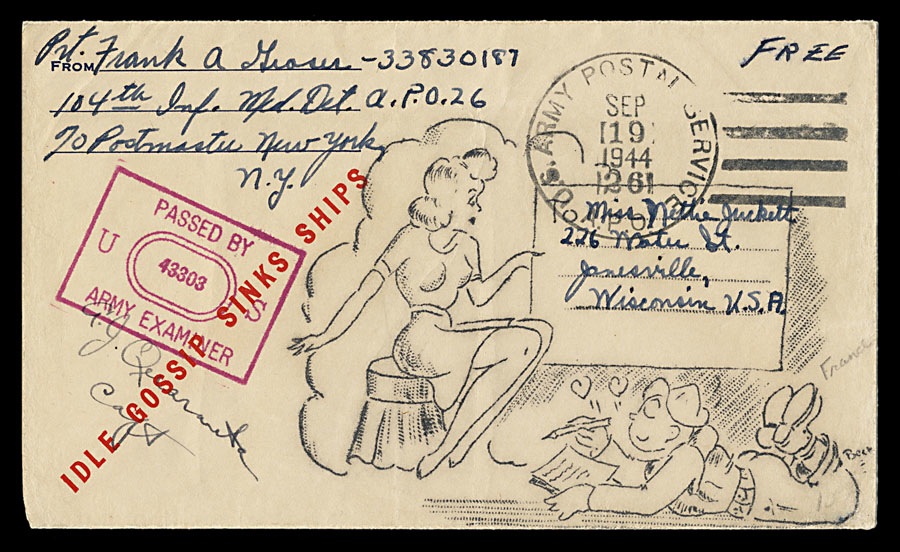 Pvt. Frank A -33830187
FROM
104th Inf. Med. Det. A.P.O. 26
℅ Postmaster New York,
N.Y.
FREE
U.S. ARMY POSTAL SERVICE
SEP
19
1944
26
Miss Nettie Juckett
226 Water St.
Janesville,
Wisconsin, U.S.A.
PASSED BY
U 43303 S
ARMY EXAMINER
IDLE GOSSIP SINKS SHIPS